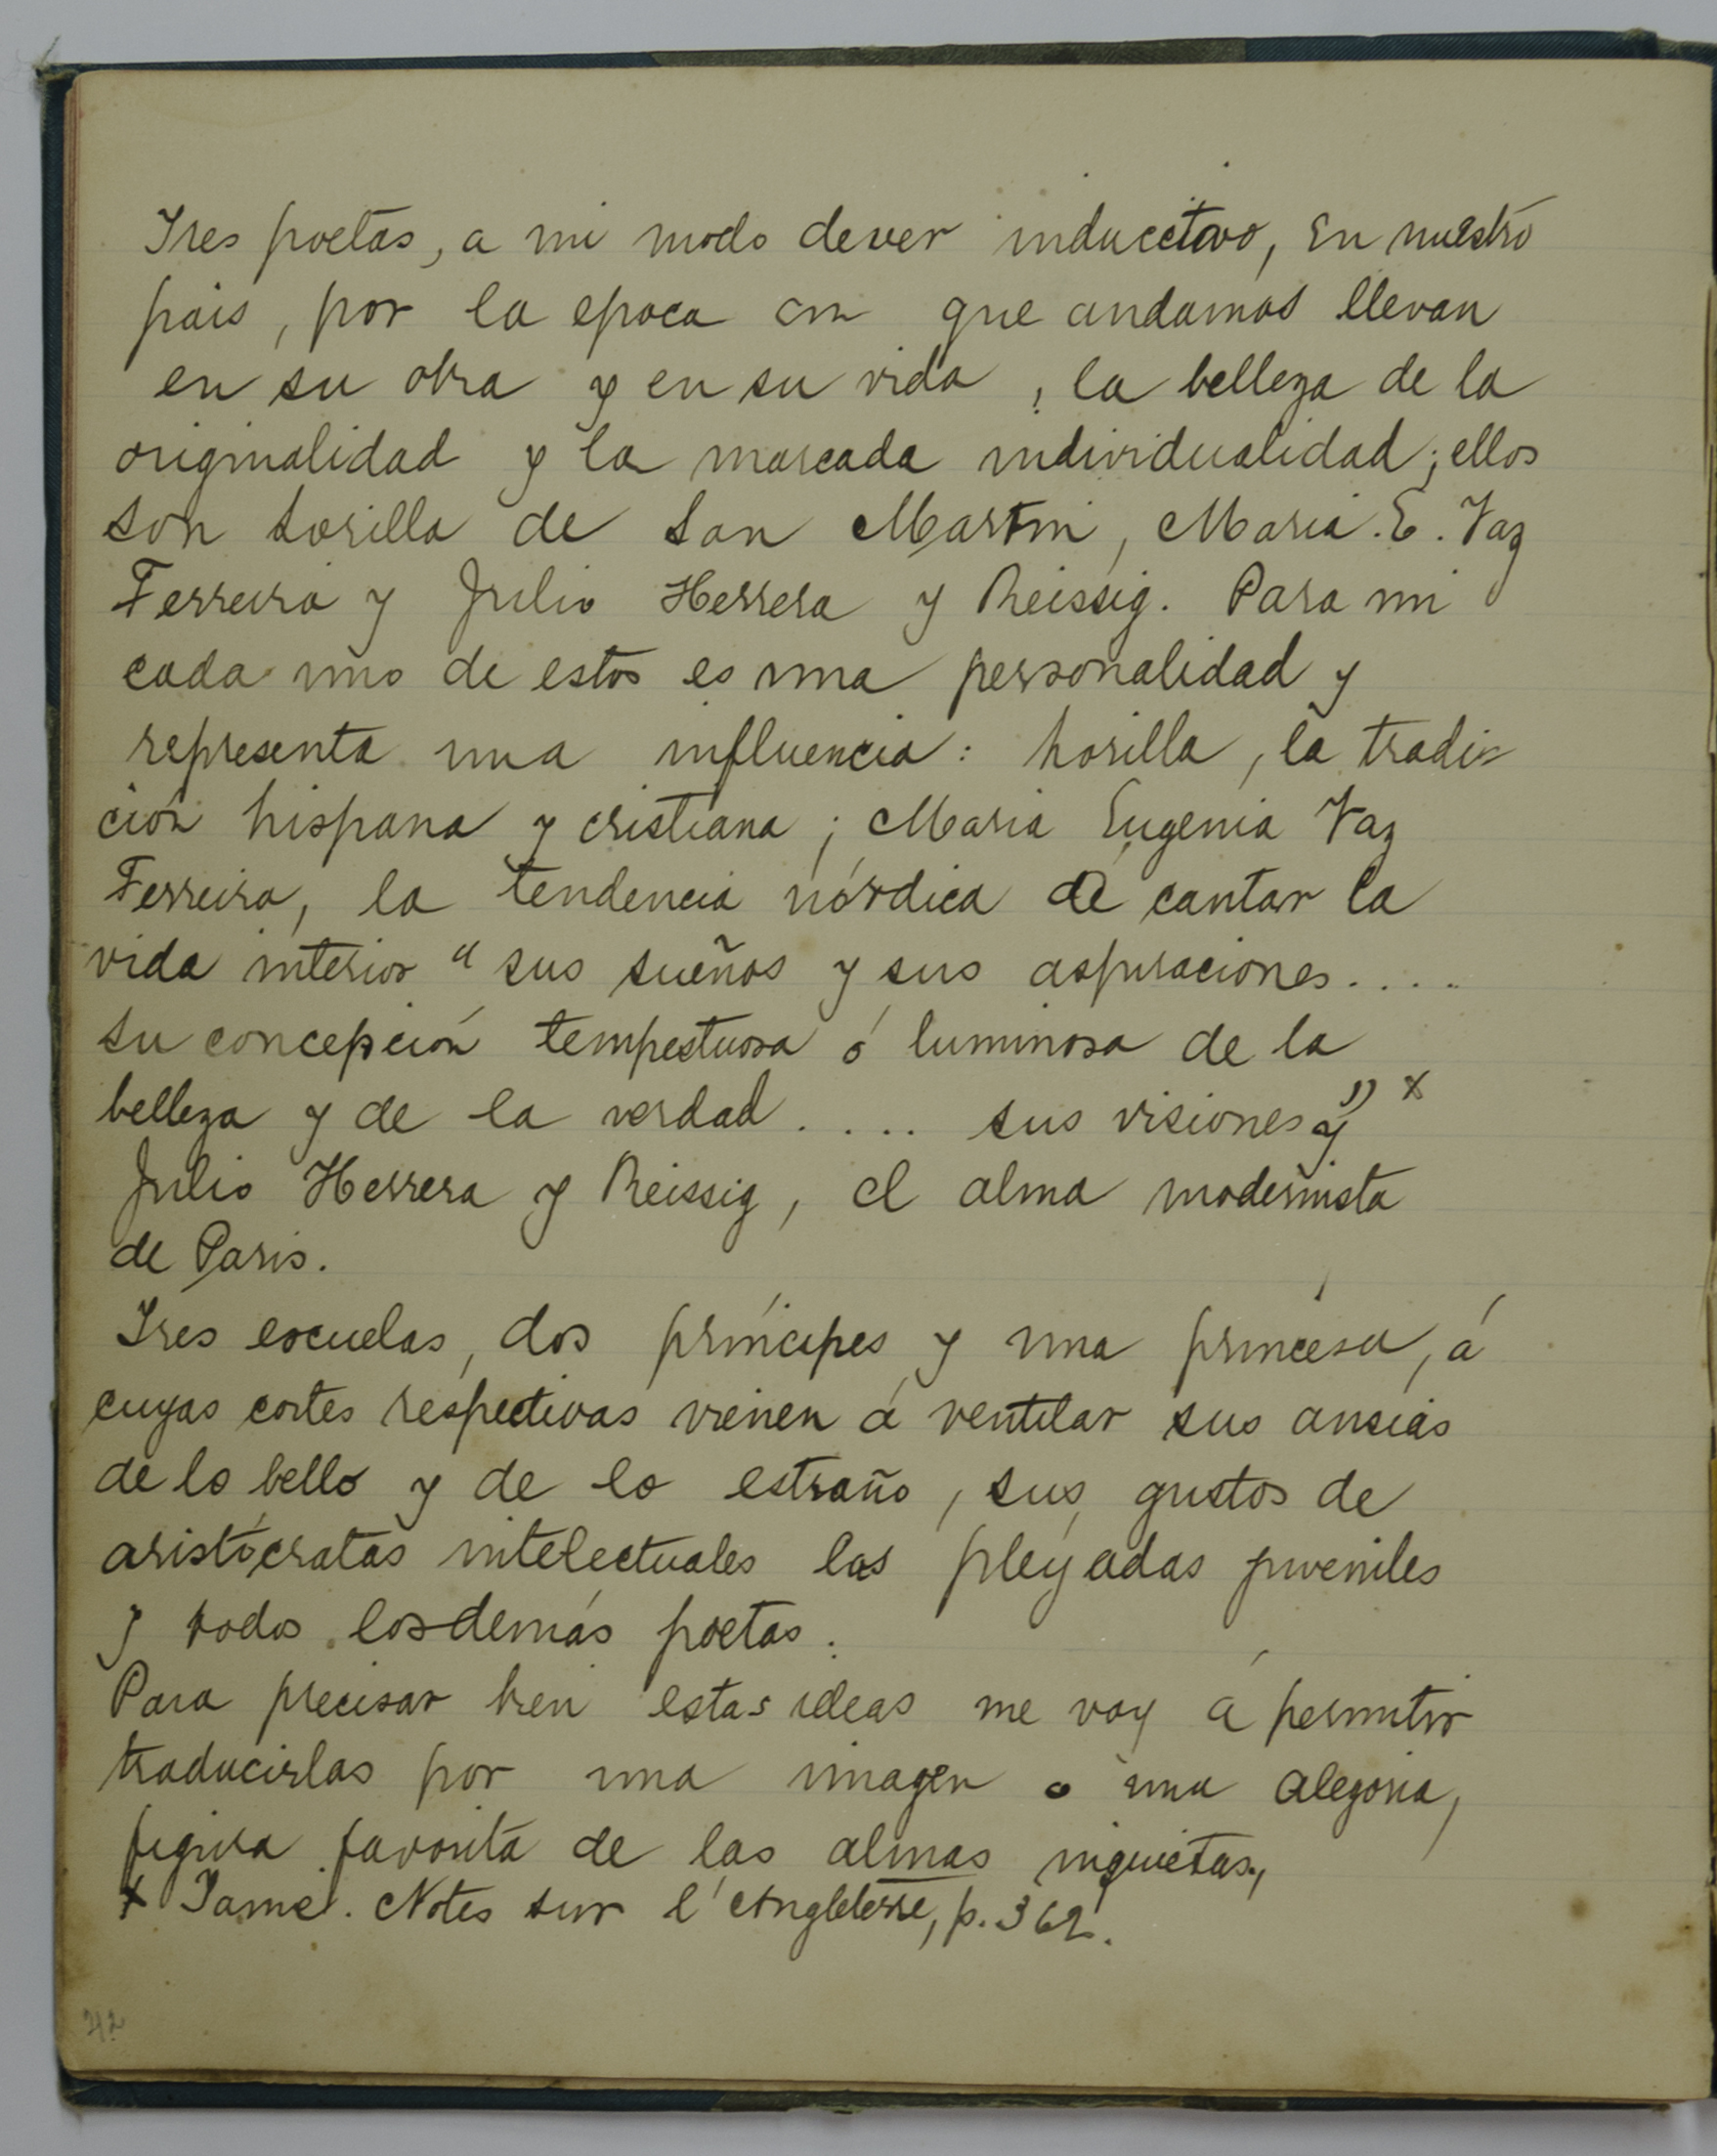 Tres poetas, a mi modo de ver inductivo, en nuestro
pais, por la epoca en que andamos llevan
en su obra y en su vida, la belleza de la
originalidad y la marcada individualidad; ellos
son Zorilla de San Martin, Maria. E. Vaz
Ferreira y Julio Herrera y Reissig. Para mi
cada uno de estos es una personalidad y
representa una influencia: Zorilla, la tradi-
ción hispana y cristiana; Maria Eugenia Vaz
Ferreira, la tendencia nórdica de cantar la
vida interior "sus sueños y sus aspiraciones....
su concepción tempestuosa ó luminosa de la
belleza y de la verdad.... sus visiones" x y
Julio Herrera y Reissig, el alma modernista
de Paris.
Tres escuelas, dos príncipes y una princesa, á
cuyas cortes respectivas vienen á ventilar sus ansias
de lo bello y de lo estraño, sus gustos de
aristócratas intelectuales las pleyadas juveniles
y todos los demás poetas.
Para precisar bien estas ideas me voy á permitir
traducirlas por una imagen o una alegoria,
figura favorita de las almas inquietas,
x Taine. Notes sur l'Angleterre, p. 362.
42